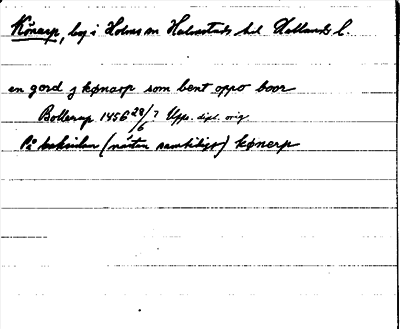 Könarp, by i Holms sn Halmstads hd Hallands l.
en gord j kønarp som bent oppo boor
Bollerup 1456 28/6 ? Upps. dipl. orig
På baksidan (nästan samtidigt) kønerp